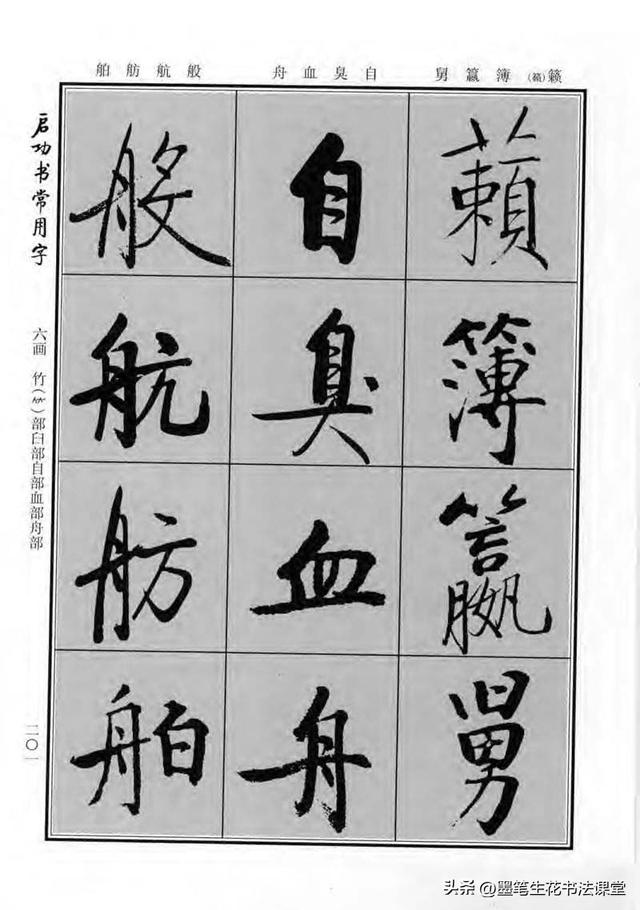 籁(籟)簿籯舅 自臭血舟 般航舫舶
籟
簿
籯
舅
自
臭
血
舟
般
航
舫
舶
启功书常用字
六画 竹(⺮)部臼部自部血部舟部
二〇一
头条 @墨笔生花书法课堂